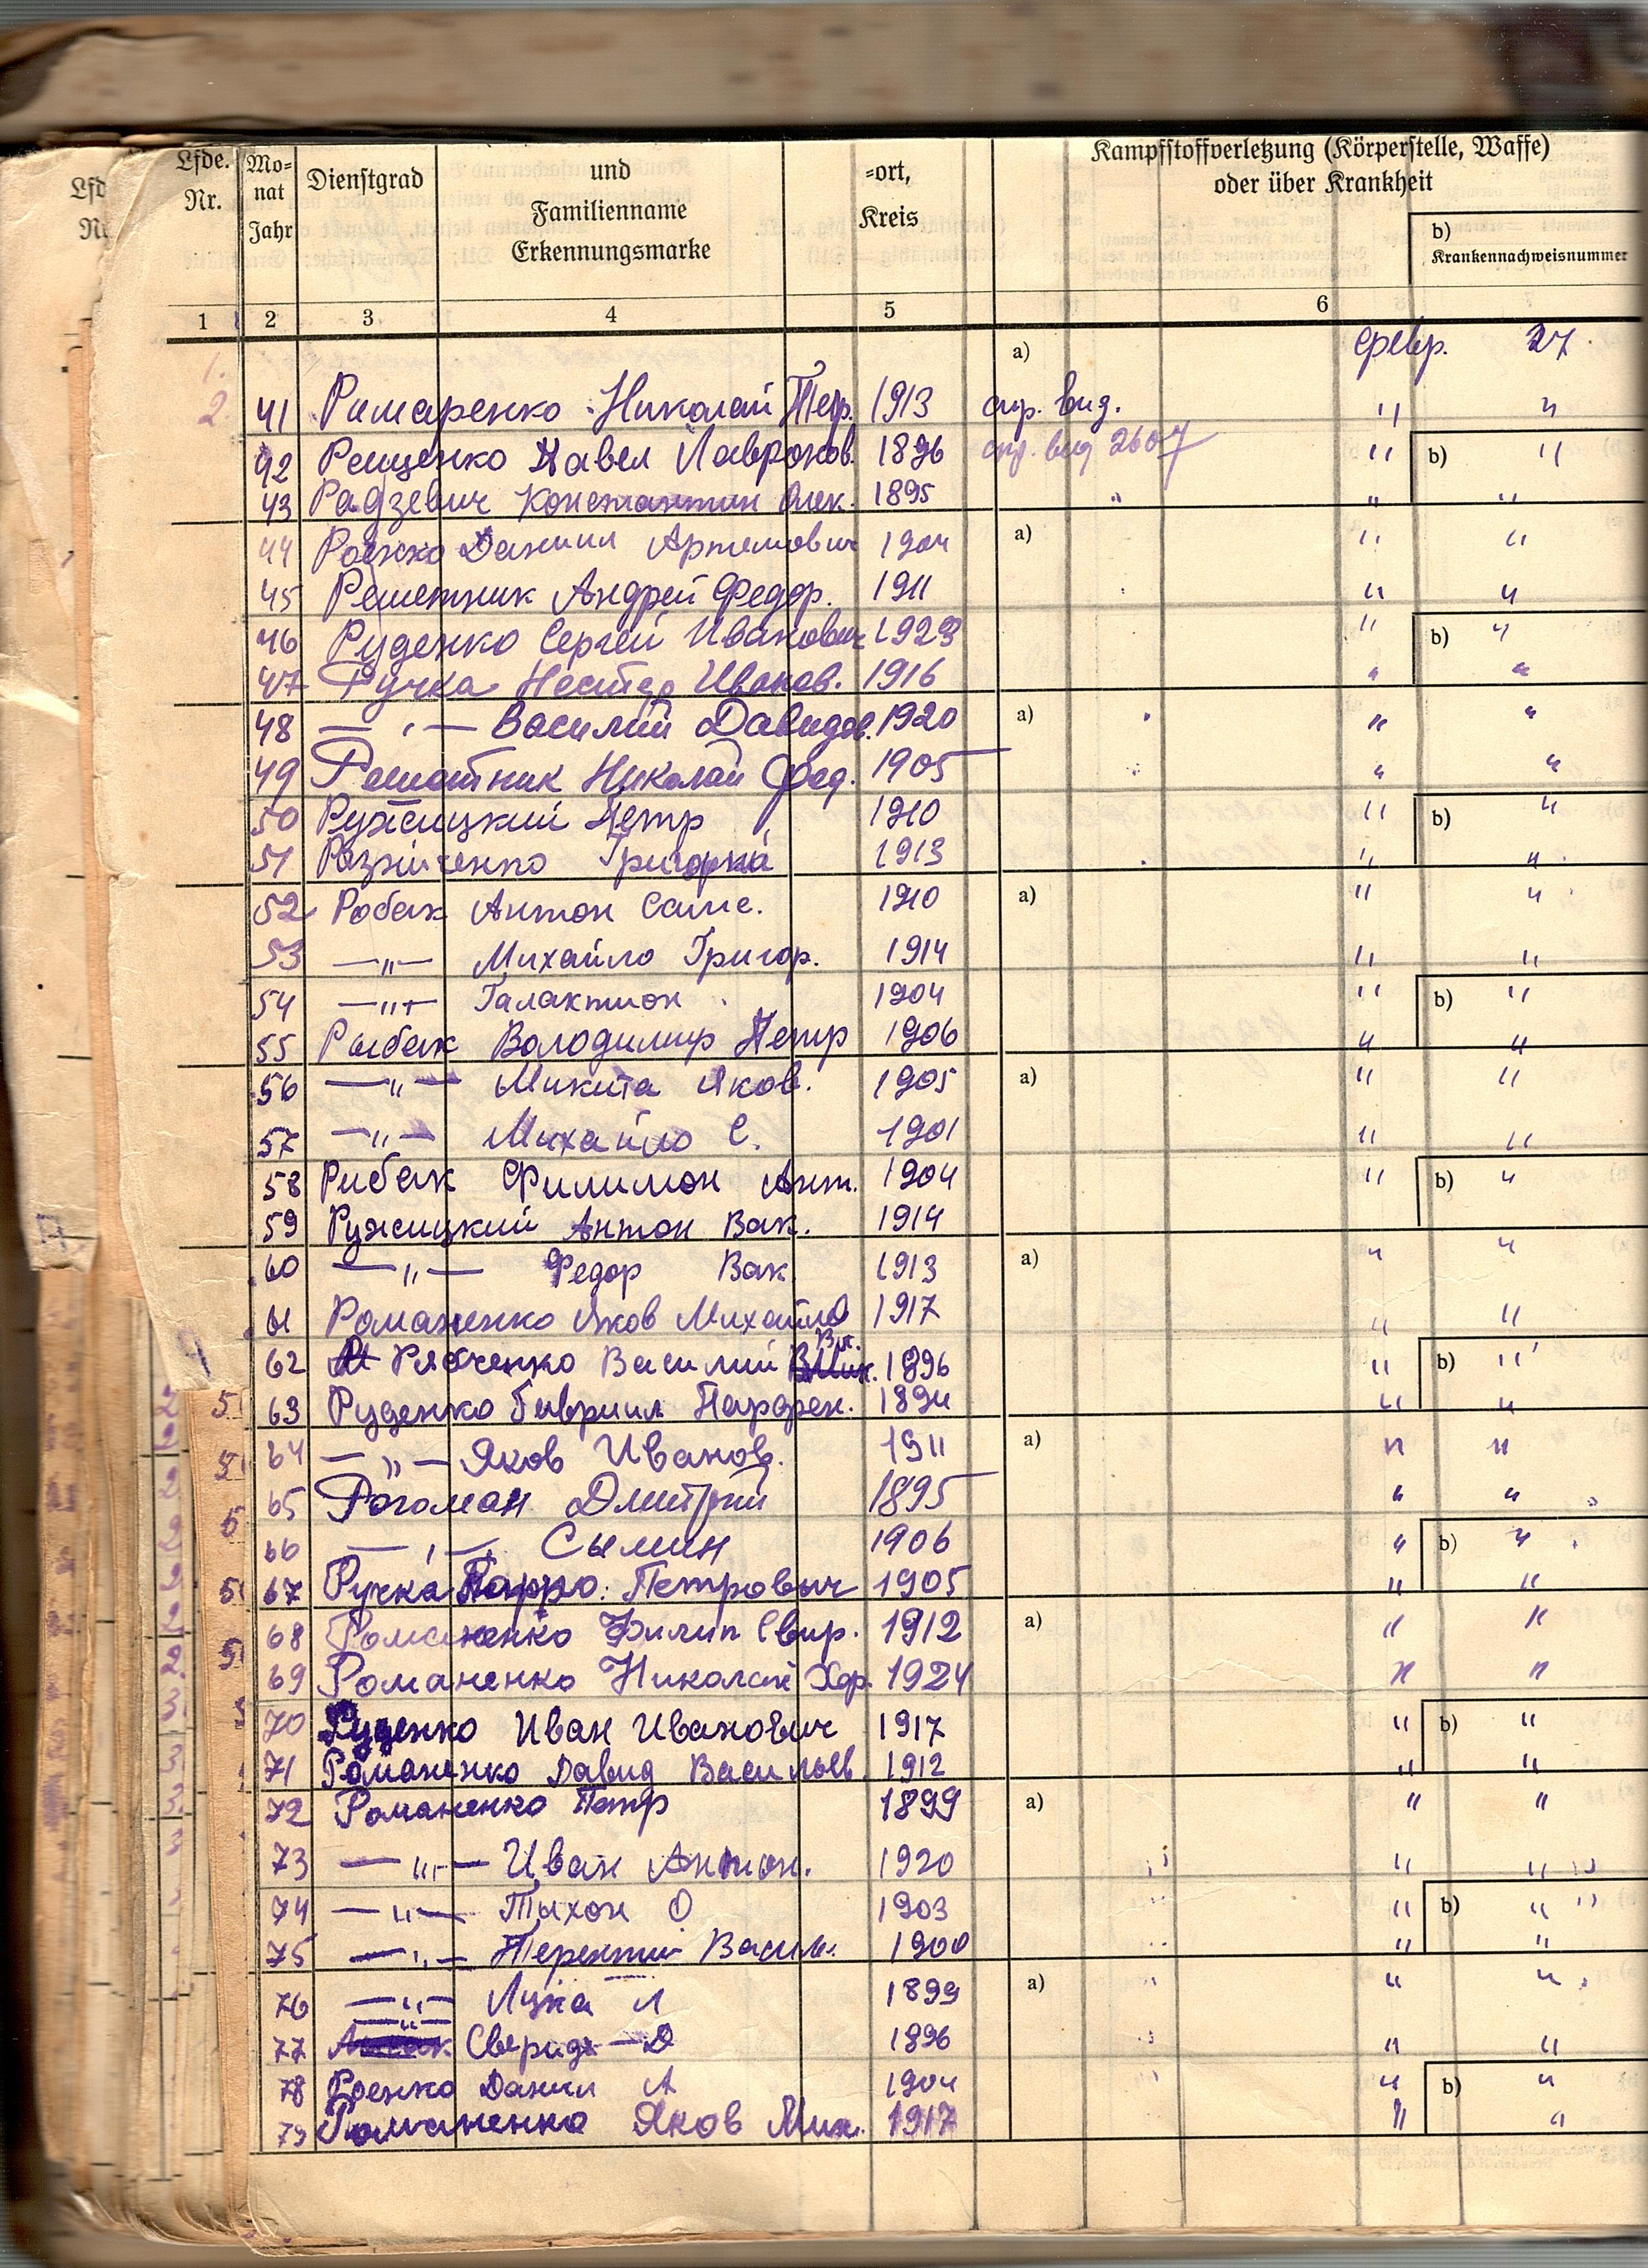 Lfde. Nr.
Mo- nat Jahr
Dienstgrad
und Familienname Erkennungsmarke
=ort, Kreis
Kampfstoffverletzung (Körperstelle, Waffe)
oder über Krankheit
b)
Krankennachweisnummer
1 2 3 4 5 6
a) февр. 27
41 Римаренко Николай Петр. 1913 " "
42 Рещенко Павел Лавронов. 1896 2607 " b) "
43 Радзевич Константин Олек. 1895 " " "
44 Роенко Даниил Артемович 1904 a) " "
45 Решетник Андрей Федор. 1911 " "
46 Руденко Сергей Иванович 1923 " b) "
47 Ручка Нестер Иванов. 1916 " "
48 — " — Василий Давидов. 1920 a) " "
49 Решетник Николай Фед. 1905 " "
50 Ружицкий Петр 1910 " b) "
51 Розниченко Григорий 1913 " "
52 Робак Антон Саме. 1910 a) " "
53 — " — Михайло Григор. 1914 " "
54 — " — Галактион 1904 " b) "
55 Рыбак Володимир Петр 1906 " "
56 — " — Микита Яков. 1905 a) " "
57 — " — Михайло С. 1901 " "
58 Рибак Филимон Ант. 1904 " b) "
59 Ружицкий Антон Вак. 1914
60 — " — Федор Вак 1913 a) " "
61 Романенко Яков Михайло 1917 " "
62 Рябченко Василий 1896 " b) "
63 Руденко Гавриил Парфен. 1894 " "
64 — " — Яков Иванов. 1911 a) " "
65 Рогоман Дмитрий 1895 " "
66 — " — Сымин 1906 " b) "
67 Ручка Петрович 1905 " "
68 Романенко Филип Свир. 1912 a) " "
69 Романенко Николай Хар. 1924 " "
70 Руденко Иван Иванович 1917 " b) "
71 Романенко Давид Васильев 1912 " "
72 Романенко Петр 1899 a) " "
73 — " — Иван Антон. 1920 " "
74 — " — Тыхон О 1903 " b) "
75 — " — Терентий Васил. 1900 " "
76 — " — Лука Л 1899 a) " "
77 — " — Сверид — Д 1896 " "
78 Роенко Данил А 1904 " b) "
79 Романенко Яков Мих. 1917 " "